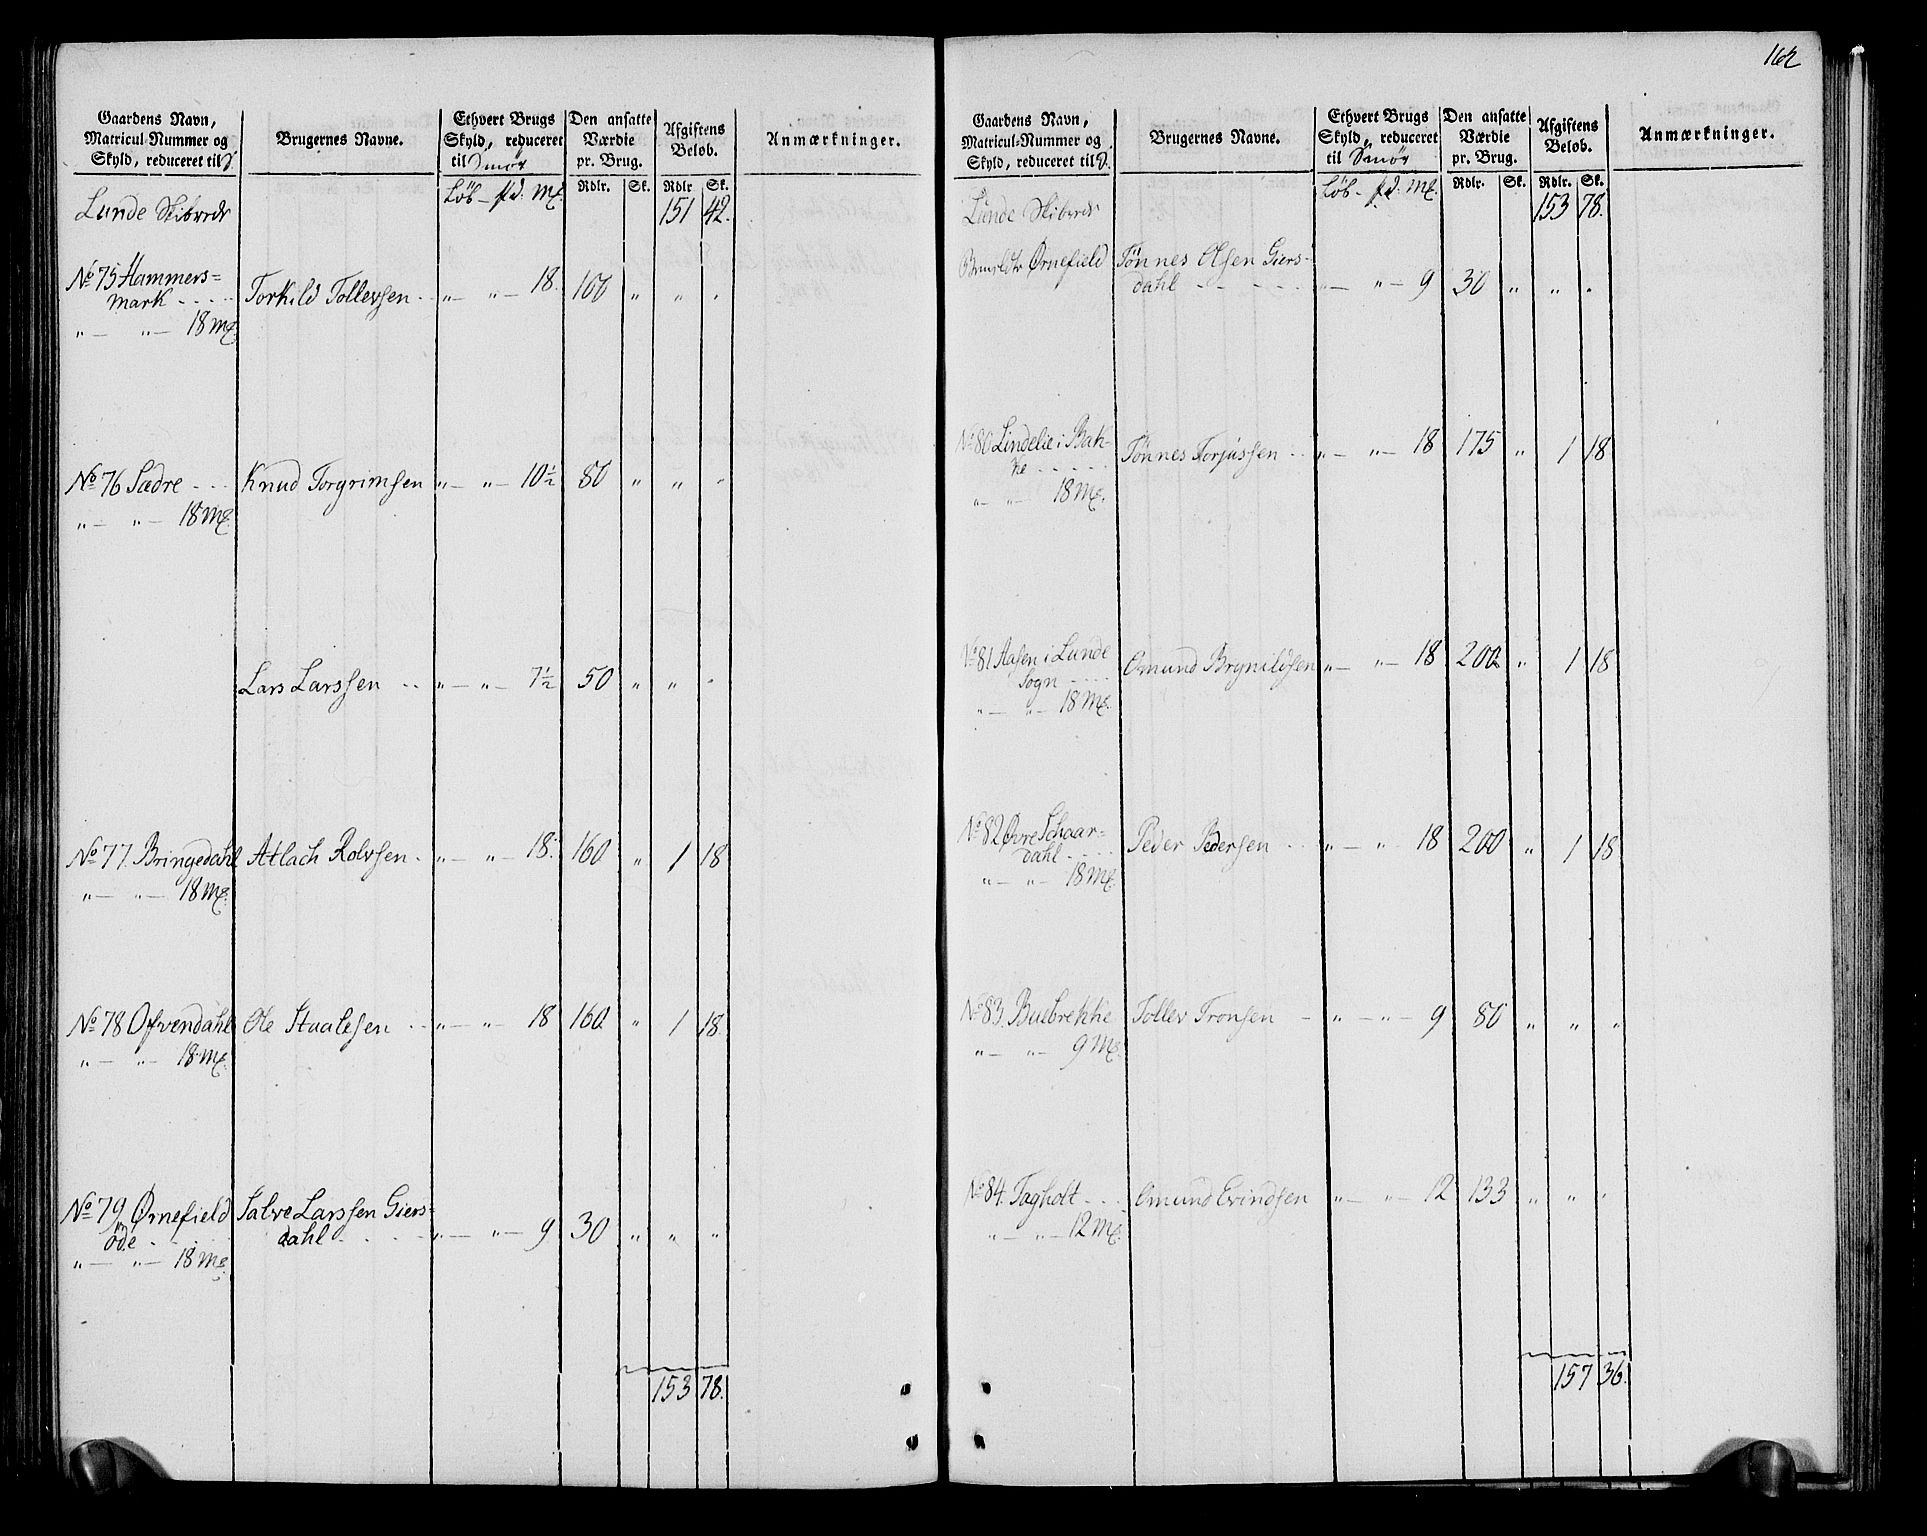 Gaardens Navn,
Matricul-Nummer og
Skyld, reduceret til S.
Brugernes Navne.
Ethvert Brugs
Skyld, reduceret
til Smør
Den ansatte
Værdie
pr. Brug.
Afgiftens
Beløb.
Anmærkninger.
Løb - pd. Mk.
Rdlr. Sk. Rdlr Sk.
Lunde Skibrede 151 42.
No 75 Hammers=
mark . . . . Torkild Tollevsen . . „ — „ — 18. 100 „ „ .
„ — „ — 18 Mk.
No 76 Sædre . . . Knud Torgrimsen „ — „ — 10½ 80 „ „ .
„ — „ — 18 Mk.
Lars Larssen . . „ — „ — 7½ 50 „ „ .
No 77. Bringedahl Atlach Rolvsen . „ — „ — 18. 160 „ 1 18
„ — „ — 18 Mk.
No 78 Ofvendahl Ole Staalesen . . „ — „ — 18 160. „ 1 18.
„ — „ — 18 Mk.
No 79 Ørnefield Salve Larssen Giers=
øde . . . . dahl . . . . „ — „ — 9 30 „ „ „
„ — „ — 18 Mk.
153 78.
162
Gaardens Navn,
Matricul-Nummer og
Skyld, reduceret til S.
Brugernes Navne.
Ethvert Brugs
Skyld, reduceret
til Smør
Den ansatte
Værdie
pr. Brug.
Afgiftens
Beløb.
Anmærkninger.
Løb - pd. Mk.
Rdlr. Sk. Rdlr. Sk.
Lunde Skibrede 153 78.
Ørnefield Tønnes Olsen Giers-
dahl . . . . „ — „ — 9 30 „ „ .
No 80 Lindelie i Bak-
ke . . . . . Tønnes Torjussen . . „ — „ — 18 175 „ 1 18
„ — „ — 18 Mk.
No 81 Aasen i Lunde Omund Brynilsen „ — „ — 18 200 „ 1 18
Sogn . . . .
„ — „ — 18 Mk.
No 82 Øvre Schaar=
dahl . . . . Peder Pedersen . . „ — „ — 18 200 „ 1 18
„ — „ — 18 Mk.
No 83. Buebrekke Tollev Tronsen - „ — „ — 9 80 „ „ „
„ — „ — 9 Mk.
No 84. Tagholt . . . Omund Evindsen „ — „ — 12 133 „ „ „
„ — „ — 12 Mk.
157 36.